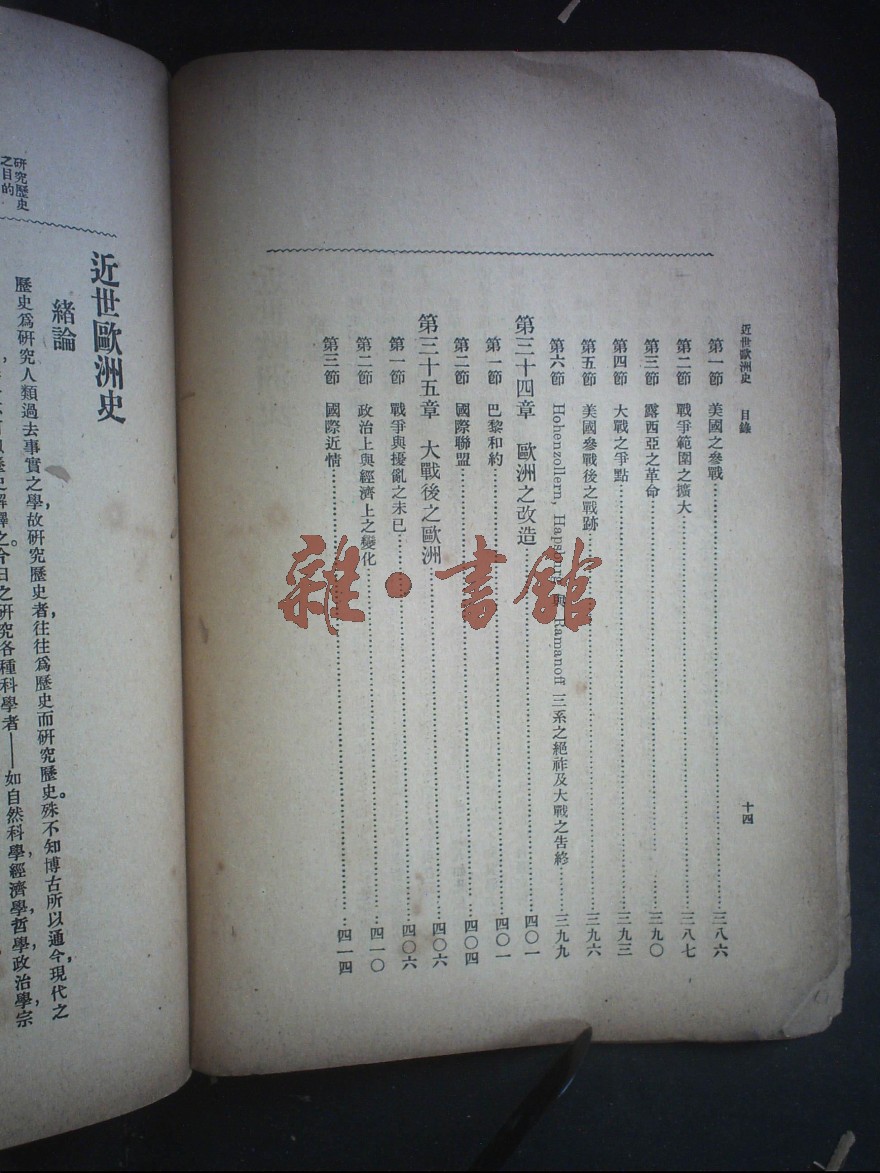 近世歐洲史 目錄 十四
第一節 美國之參戰……三八六
第二節 戰爭範圍之擴大……三八七
第三節 露西亞之革命……三九〇
第四節 大戰之爭點……三九三
第五節 美國參戰後之戰跡……三九六
第六節 Hohenzollern, Hapsburg 與 Ramanoff 三系之絕祚及大戰之告終……三九九
第三十四章 歐洲之改造……四〇一
第一節 巴黎和約……四〇一
第二節 國際聯盟……四〇四
第三十五章 大戰後之歐洲……四〇六
第一節 戰爭與擾亂之未已……四〇六
第二節 政治上與經濟上之變化……四一〇
第三節 國際近情……四一四
研究歷史
之目的
近世歐洲史
緒論
歷史爲研究人類過去事實之學,故研究歷史者,往往爲歷史而研究歷史。殊不知博古所以通今,現代之
歷史解釋之。今日之研究各種科學者——如自然科學,經濟學,哲學,政治學,宗
雜·書館